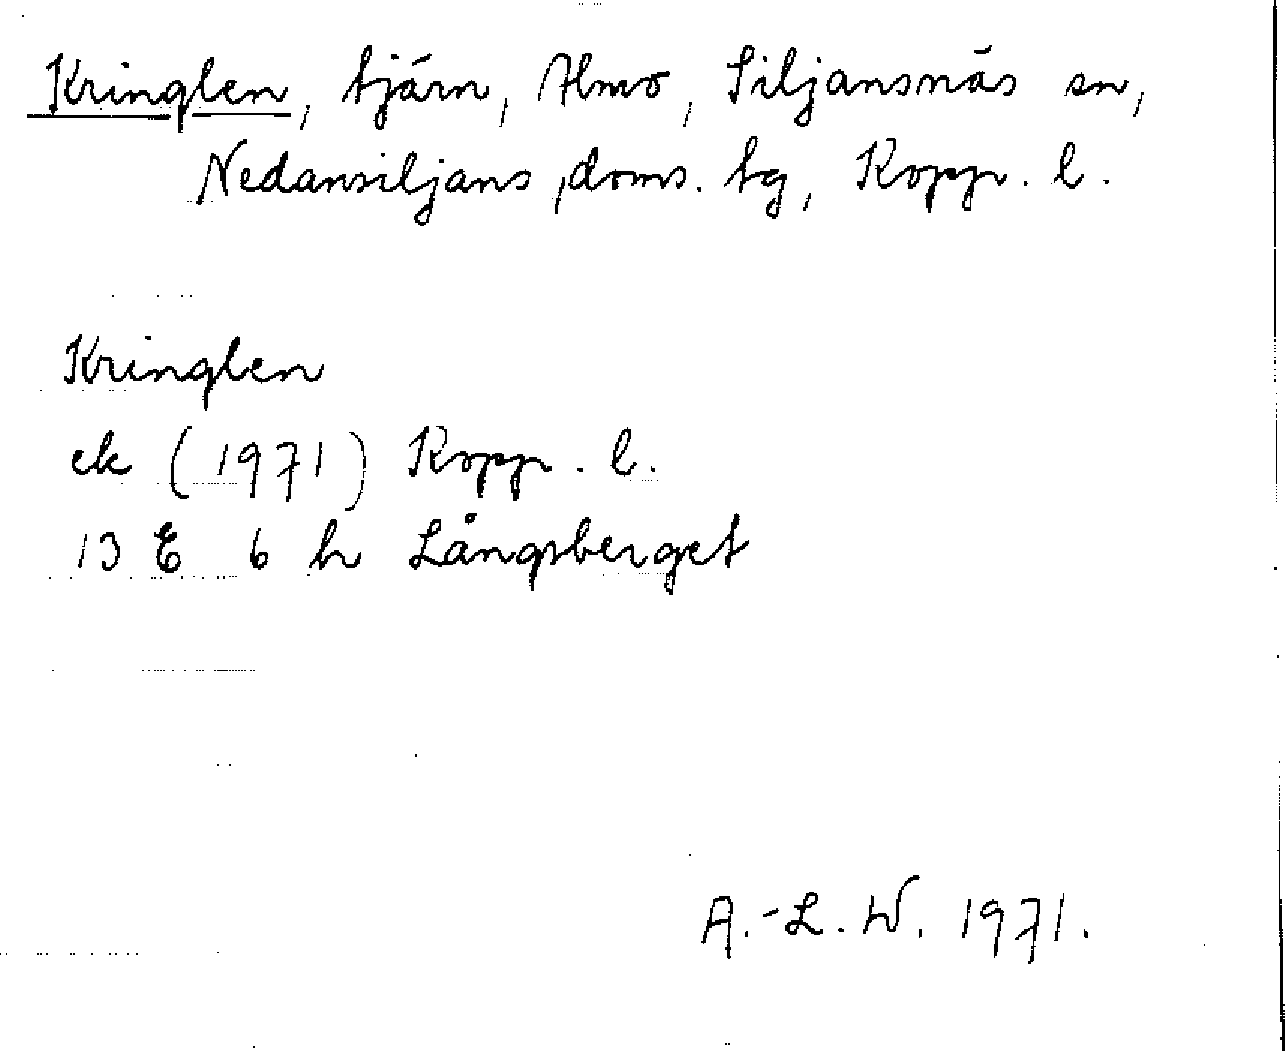 Kringlen, tjärn, Almo, Siljansnäs sn,
Nedansiljans doms. tg, Kopp. l.
Kringlen
ek (1971) Kopp. l.
13 E 6 h Långsberget
A.-L. W. 1971.